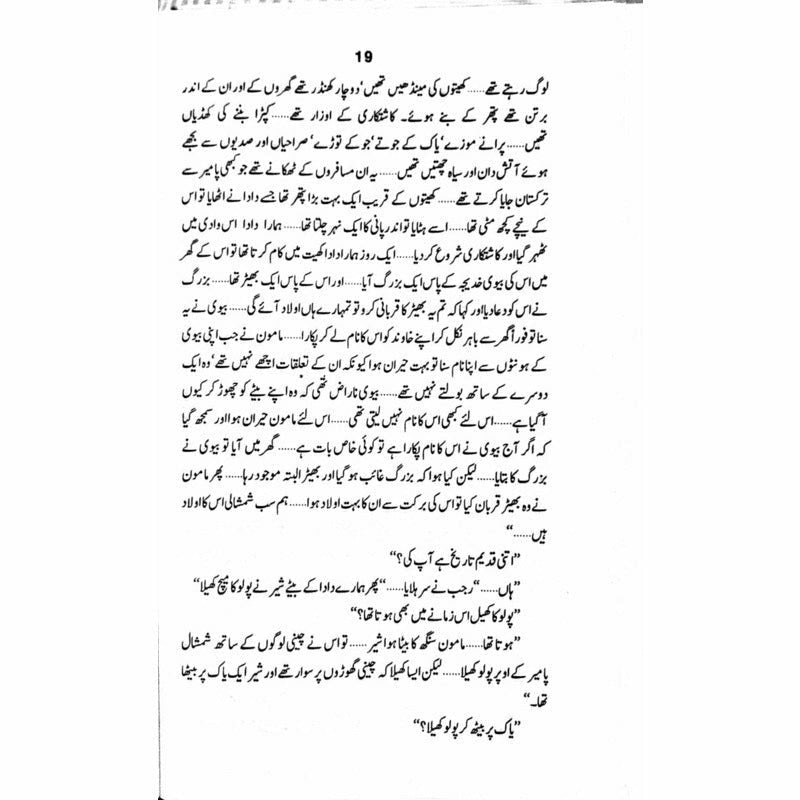 19
لوگ رہتے تھے...... کھیتوں کی مینڈھیں تھیں‘ دو چار کھنڈر تھے گھروں کے اور ان کے اندر
برتن تھے پتھر کے بنے ہوئے۔ کاشتکاری کے اوزار تھے...... کپڑا بننے کی کھڈیاں
تھیں...... پرانے موزے‘ یاک کے جوتے‘ جو کے توڑے‘ صراحیاں اور صدیوں سے بجھے
ہوئے آتش دان اور سیاہ چھتیں تھیں...... یہ ان مسافروں کے ٹھکانے تھے جو کبھی پامیر سے
ترکستان جایا کرتے تھے...... کھیتوں کے قریب ایک بہت بڑا پتھر تھا جسے دادا نے اٹھایا تو اس
کے نیچے کچھ مٹی تھا...... اسے ہٹایا تو اندر پانی کا ایک نہر چلتا تھا...... ہمارا دادا اس وادی میں
ٹھہر گیا اور کاشتکاری شروع کر دیا...... ایک روز ہمارا دادا کھیت میں کام کرتا تھا تو اس کے گھر
میں اس کی بیوی خدیجہ کے پاس ایک بزرگ آیا...... اور اس کے پاس ایک بھیڑ تھا...... بزرگ
نے اس کو دعا دیا اور کہا کہ تم یہ بھیڑ کا قربانی کرو تو تمہارے ہاں اولاد آئے گی...... بیوی نے یہ
سنا تو فوراً گھر سے باہر نکل کر اپنے خاوند کو اس کا نام لے کر پکارا...... مامون نے جب اپنی بیوی
کے ہونٹوں سے اپنا نام سنا تو بہت حیران ہوا کیونکہ ان کے تعلقات اچھے نہیں تھے‘ وہ ایک
دوسرے کے ساتھ بولتے نہیں تھے...... بیوی ناراض تھی کہ وہ اپنے بیٹے کو چھوڑ کر کیوں
آ گیا ہے...... اس لئے کبھی اس کا نام نہیں لیتی تھی...... اس لئے مامون حیران ہوا اور سمجھ گیا
کہ اگر آج بیوی نے اس کا نام پکارا ہے تو کوئی خاص بات ہے...... گھر میں آیا تو بیوی نے
بزرگ کا بتایا...... لیکن کیا ہوا کہ بزرگ غائب ہو گیا اور بھیڑ البتہ موجود رہا...... پھر مامون
نے وہ بھیڑ قربان کیا تو اس کی برکت سے ان کا بہت اولاد ہوا...... ہم سب شمشالی اس کا اولاد
ہیں......“
”اتنی قدیم تاریخ ہے آپ کی؟“
”ہاں......“ رجب نے سر ہلایا...... ”پھر ہمارے دادا کے بیٹے شیر نے پولو کا میچ کھیلا“
”پولو کا کھیل اس زمانے میں بھی ہوتا تھا؟“
”ہوتا تھا...... مامون سنگھ کا بیٹا ہوا شیر...... تو اس نے چینی لوگوں کے ساتھ شمشال
پامیر کے اوپر پولو کھیلا...... لیکن ایسا کھیلا کہ چینی گھوڑوں پر سوار تھے اور شیر ایک یاک پر بیٹھا
تھا۔“
”یاک پر بیٹھ کر پولو کھیلا؟“